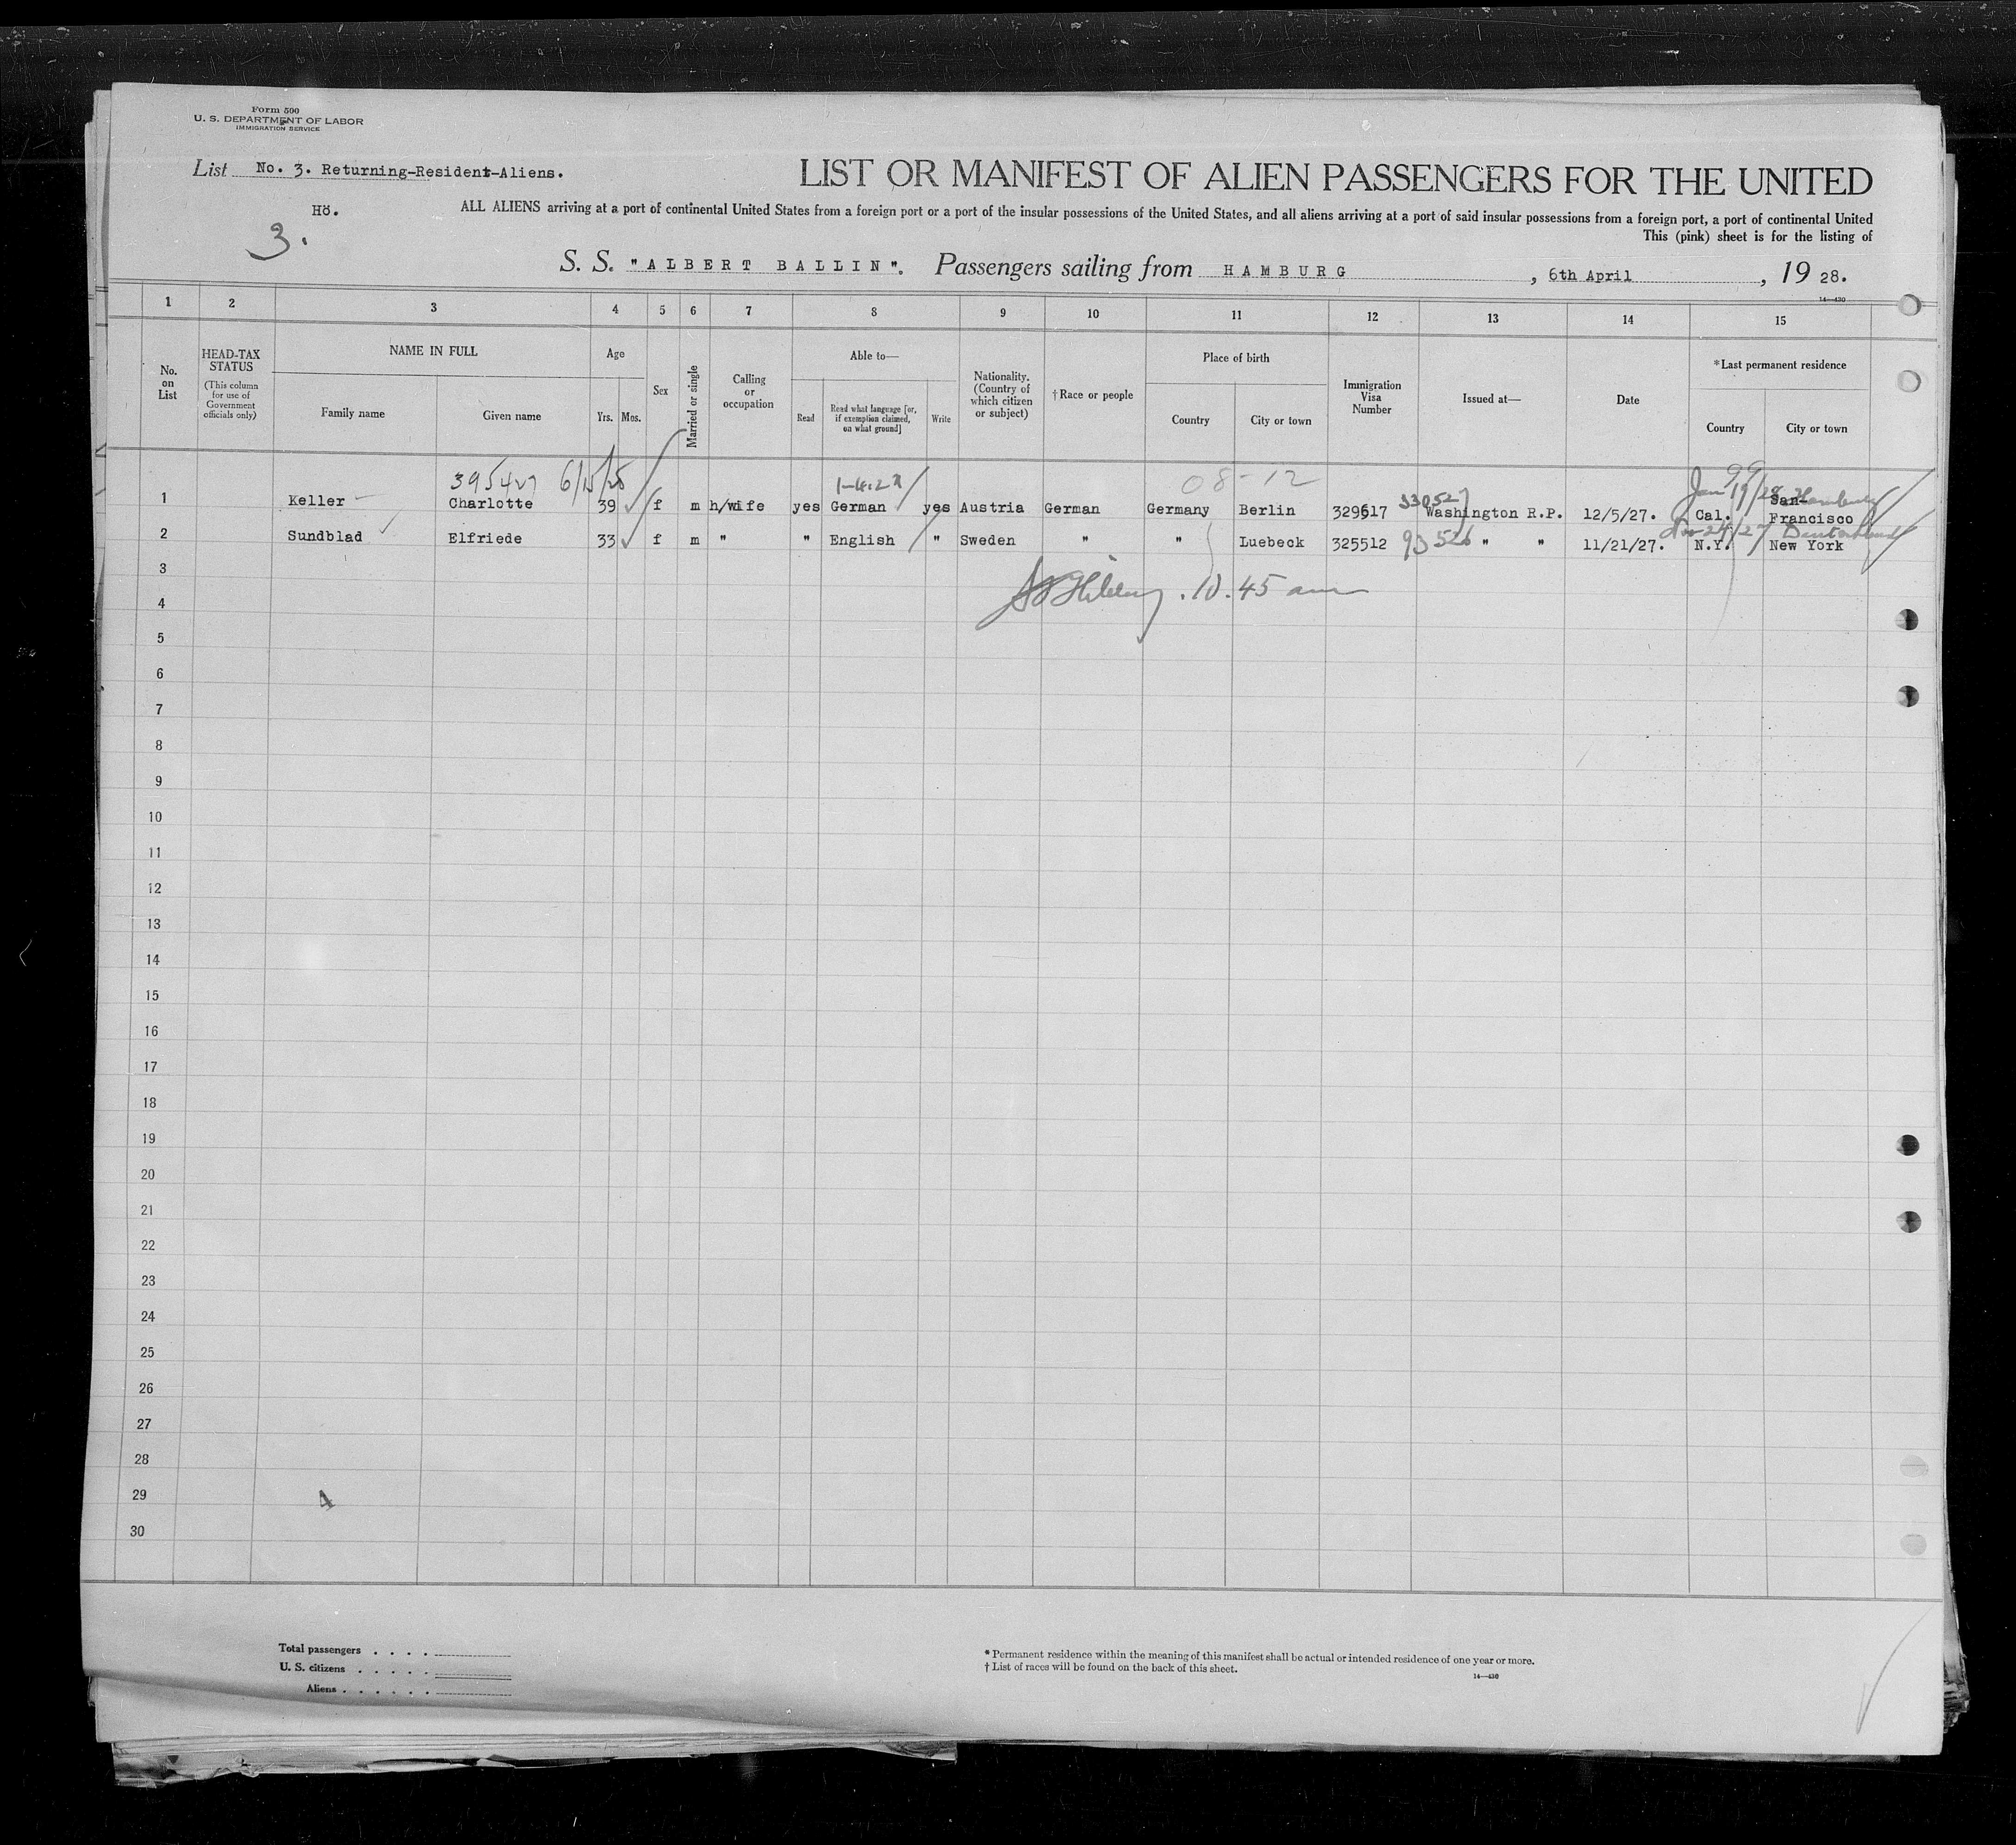 Form 500
U. S. DEPARTMENT OF LABOR
IMMIGRATION SERVICE
List No. 3. Returning-Resident-Aliens.
LIST OR MANIFEST OF ALIEN PASSENGERS FOR THE UNITED
Hö.
3.
ALL ALIENS arriving at a port of continental United States from a foreign port or a port of the insular possessions of the United States, and all aliens arriving at a port of said insular possessions from a foreign port, a port of continental United
This (pink) sheet is for the listing of
S. S. "ALBERT BALLIN". Passengers sailing from HAMBURG, 6th April, 1928.
14—430
1 2 3 4 5 6 7 8 9 10 11 12 13 14 15
No. on List
HEAD-TAX STATUS (This column for use of Government officials only)
NAME IN FULL
Family name
Given name
Age
Yrs.
Mos.
Sex
Married or single
Calling or occupation
Able to—
Read
Read what language [or, if exemption claimed, on what ground]
Write
Nationality. (Country of which citizen or subject)
†Race or people
Place of birth
Country
City or town
Immigration Visa Number
Issued at—
Date
*Last permanent residence
Country
City or town
395427 6/15/28 08-12
1 Keller Charlotte 39 f m h/wife yes German yes Austria German Germany Berlin 329617 Washington R.P. 12/5/27. Cal. San-Francisco
2 Sundblad Elfriede 33 f m " " English " Sweden " " Luebeck 325512 " " 11/21/27. N.Y. New York
10.45 am
3
4
5
6
7
8
9
10
11
12
13
14
15
16
17
18
19
20
21
22
23
24
25
26
27
28
29
30
4
Total passengers . . . .
U. S. citizens . . . . .
Aliens . . . . . .
* Permanent residence within the meaning of this manifest shall be actual or intended residence of one year or more.
† List of races will be found on the back of this sheet.
14—430